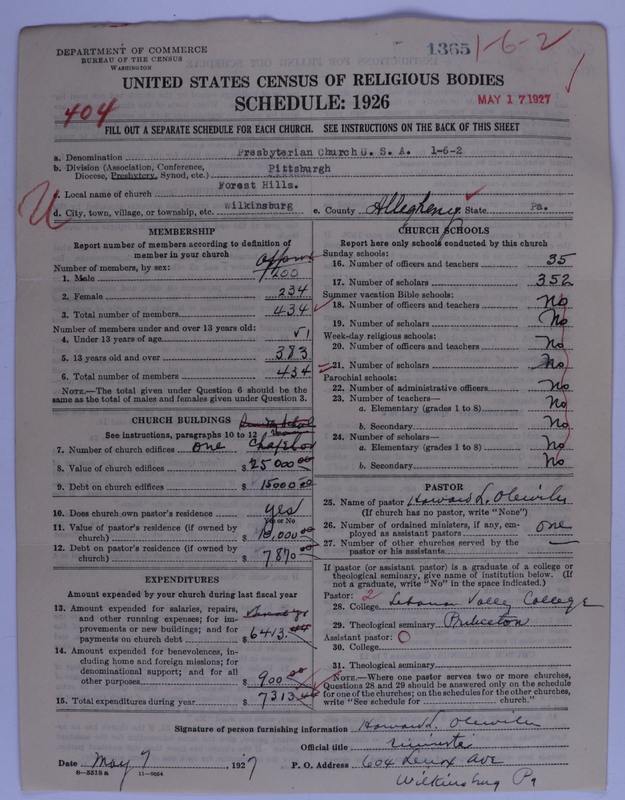 DEPARTMENT OF COMMERCE
BUREAU OF THE CENSUS
WASHINGTON
1365
1-6-2
UNITED STATES CENSUS OF RELIGIOUS BODIES
SCHEDULE: 1926
MAY 17 1927
404
FILL OUT A SEPARATE SCHEDULE FOR EACH CHURCH. SEE INSTRUCTIONS ON THE BACK OF THIS SHEET
a. Denomination Presbyterian Church U. S. A. 1-6-2
b. Division (Association, Conference, Diocese, Presbytery, Synod, etc.) Pittsburgh
c. Local name of church Forest Hills.
d. City, town, village, or township, etc. Wilkinsburg e. County Allegheny State Pa.
MEMBERSHIP
Report number of members according to definition of
member in your church
Number of members, by sex:
1. Male 200
2. Female 234
3. Total number of members 434
Number of members under and over 13 years old:
4. Under 13 years of age 51
5. 13 years old and over 383
6. Total number of members 434
NOTE.—The total given under Question 6 should be
same as the total of males and females given under Question 3.
CHURCH BUILDINGS
See instructions, paragraphs 10 to 12
7. Number of church edifices one
8. Value of church edifices $ 25000 00
9. Debt on church edifices $ 15000 00
10. Does church own pastor's residence yes
Yes or No
11. Value of pastor's residence (if owned by
church) $ 10,000 00
12. Debt on pastor's residence (if owned by
church) $ 7870 00
EXPENDITURES
Amount expended by your church during last fiscal year
13. Amount expended for salaries, repairs,
and other running expenses; for im-
provements or new buildings; and for
payments on church debt $ 6413.44
14. Amount expended for benevolences, in-
cluding home and foreign missions; for
denominational support; and for all
other purposes $ 900 00
15. Total expenditures during year $ 7313.44
CHURCH SCHOOLS
Report here only schools conducted by this church
Sunday schools:
16. Number of officers and teachers 35
17. Number of scholars 352
Summer vacation Bible schools:
18. Number of officers and teachers No
19. Number of scholars No
Week-day religious schools:
20. Number of officers and teachers No
21. Number of scholars No
Parochial schools:
22. Number of administrative officers No
23. Number of teachers—
a. Elementary (grades 1 to 8) No
b. Secondary No
24. Number of scholars—
a. Elementary (grades 1 to 8) No
b. Secondary No
PASTOR
25. Name of pastor Howard L. Olewiler
(If church has no pastor, write "None")
26. Number of ordained ministers, if any, em-
ployed as assistant pastors one
27. Number of other churches served by the
pastor or his assistants —
If pastor (or assistant pastor) is a graduate of a college or
theological seminary, give name of institution below. (If
not a graduate, write "No" in the space indicated.)
Pastor: 2
28. College Lebanon Valley College
29. Theological seminary Princeton
Assistant pastor: 0
30. College
31. Theological seminary
NOTE.—Where one pastor serves two or more churches,
Questions 28 and 29 should be answered only on the schedule
for one of the churches; on the schedules for the other churches,
write "See schedule for church."
Signature of person furnishing information Howard L. Olewiler
Official title minister
Date May 7, 1927 P. O. Address 604 Lenox Ave
Wilkinsburg Pa
8-5518 a 11-9054